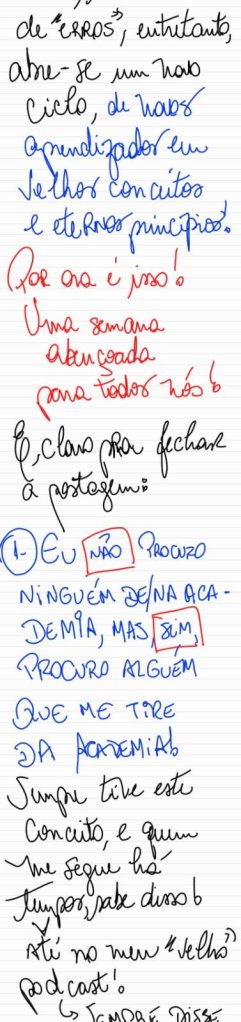 de "ERROS", entretanto,
abre-se um novo
ciclo, de novos
aprendizados em
velhos conceitos
e eternos princípios!
Por ora é isso!
Uma semana
abençoada
para todos nós!
E, claro pra fechar
a postagem:
1- EU NÃO PROCURO
NINGUÉM DE/NA ACA-
DEMIA, MAS, SIM,
PROCURO ALGUÉM
QUE ME TIRE
DA ACADEMIA!
Sempre tive este
conceito, e quem
me segue há
tempos, sabe disso!
Até no meu "velho"
podcast!
↳ SEMPRE DISSE